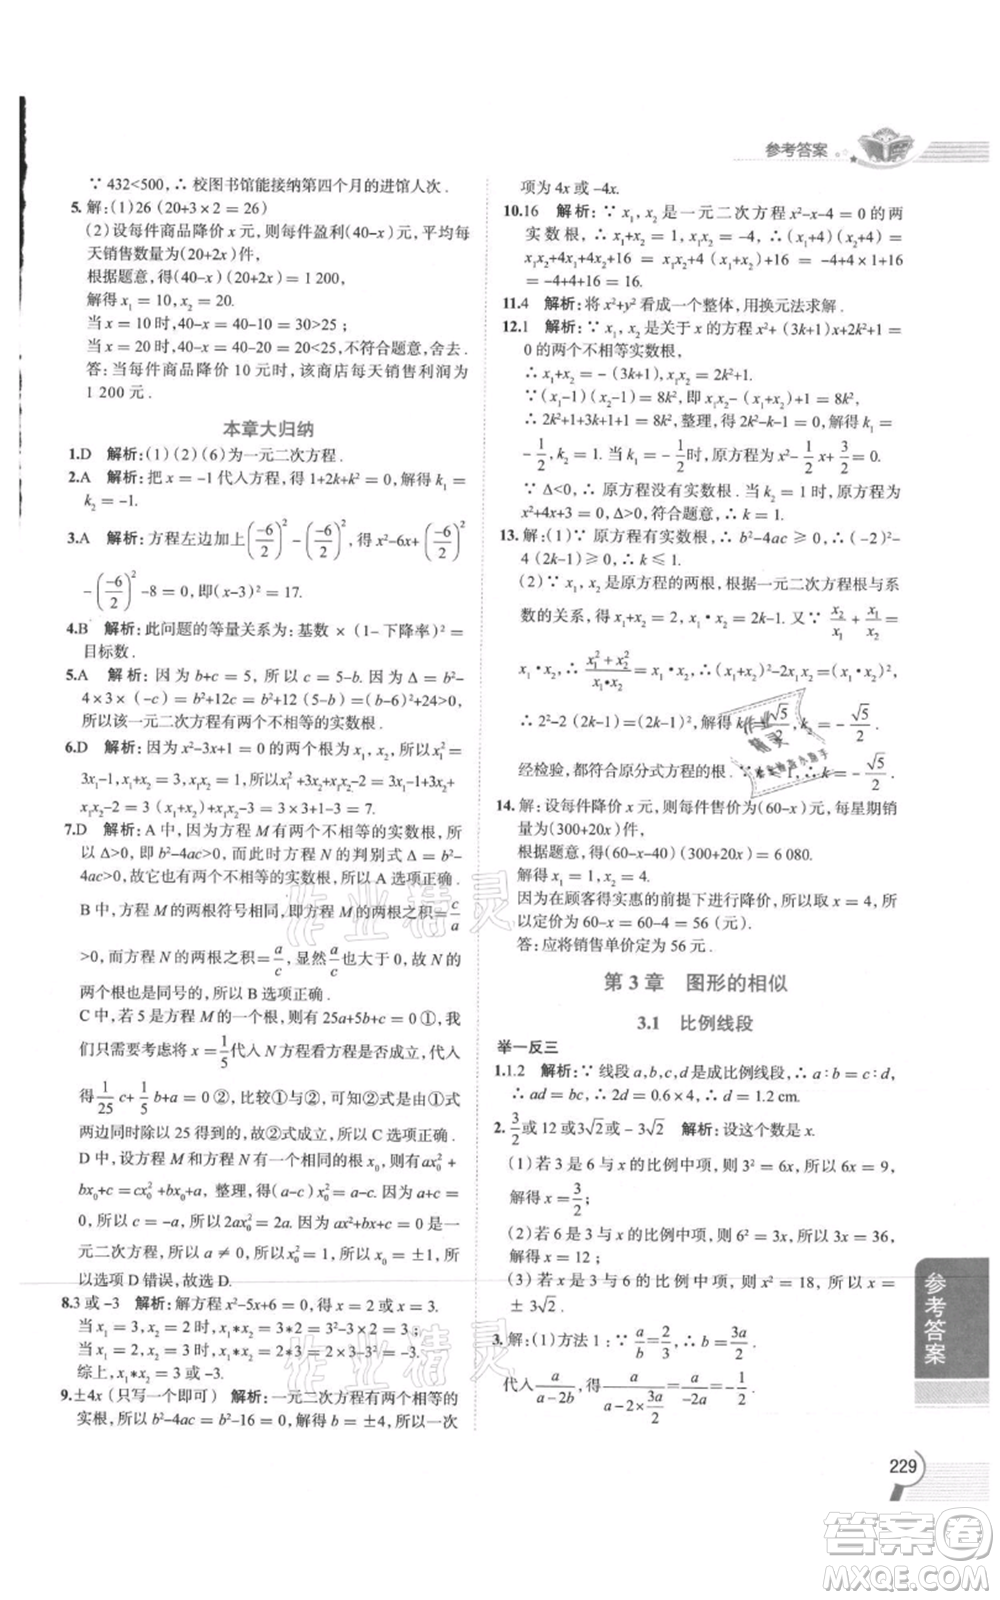 参考答案
∵ 432<500，∴ 校图书馆能接纳第四个月的进馆人次.
5. 解：(1)26 (20+3×2＝26)
(2)设每件商品降价 x 元，则每件盈利(40-x)元，平均每
天销售数量为(20+2x)件，
根据题意，得(40-x)(20+2x)＝1 200，
解得 x₁＝10，x₂＝20.
当 x＝10时，40-x＝40-10＝30>25；
当 x＝20时，40-x＝40-20＝20<25，不符合题意，舍去.
答：当每件商品降价 10 元时，该商店每天销售利润为
1 200 元.
本章大归纳
1.D 解析：(1)(2)(6)为一元二次方程.
2.A 解析：把 x＝-1代入方程，得 1+2k+k²＝0，解得 k₁＝
k₂＝-1.
3.A 解析：方程左边加上(-6/2)²-(-6/2)²，得 x²-6x+(-6/2)²
-(-6/2)²-8＝0，即(x-3)²＝17.
4.B 解析：此问题的等量关系为：基数×(1-下降率)²＝
目标数.
5.A 解析：因为 b+c＝5，所以 c＝5-b. 因为 Δ＝b²-
4×3×(-c)＝b²+12c＝b²+12(5-b)＝(b-6)²+24>0，
所以该一元二次方程有两个不相等的实数根.
6.D 解析：因为 x²-3x+1＝0的两个根为 x₁，x₂，所以 x₁²＝
3x₁-1，x₁+x₂＝3，x₁x₂＝1. 所以x₁²+3x₂+x₁x₂-2＝3x₁-1+3x₂+
x₁x₂-2＝3(x₁+x₂)+x₁x₂-3＝3×3+1-3＝7.
7.D 解析：A 中，因为方程 M 有两个不相等的实数根，所
以 Δ>0，即 b²-4ac>0，而此时方程 N 的判别式 Δ＝b²-
4ac>0，故它也有两个不相等的实数根，所以 A 选项正确.
B 中，因为方程 M 的两根符号相同，即方程 M 两根之积＝c/a
>0，而方程 N 的两根之积＝a/c，显然a/c>0，故方程 N 的
两个根也是同号的，所以 B 选项正确.
C 中，若 5 是方程 M 的一个根，则有 25a+5b+c＝0 ①，我
们只需要将 x＝1/5代入方程 N 看方程是否成立，代入得
1/25 c+1/5 b+a＝0 ②，比较①与②，可知②式是由①式
两边同时除以 25 得到的，故②式成立，所以 C 选项正确.
D 中，设相同的根为 x₀，将 x₀分别代入方程，则有ax₀²+
bx₀+c＝cx₀²+bx₀+a，整理，得(a-c)x₀²＝a-c. 因为a+c＝
0，所以 c＝-a，所以2ax₀²＝2a. 因为ax²+bx+c＝0 是一
元二次方程，所以 a≠0，所以x₀²＝1，所以 x₀＝±1，所
以选项 D 错误，故选 D.
8.3 或 -3 解析：解方程 x²-5x+6＝0，得 x＝2 或 x＝3.
当 x₁＝3，x₂＝2 时，x₁*x₂＝3²-3×2＝3；
当 x₁＝2，x₂＝3 时，x₁*x₂＝2×3-3²＝-3.
综上，x₁*x₂＝3 或 -3.
9.±4x(只写一个即可) 解析：一元二次方程有两个相等的
实根，所以 b²-4ac＝b²-16＝0，解得 b＝±4，所以一次
项为 4x 或 -4x.
10.16 解析：∵ x₁，x₂是一元二次方程x²-x-4＝0的两
实数根，∴ x₁+x₂＝1，x₁x₂＝-4，∴ (x₁+4)(x₂+4)＝
x₁x₂+4x₁+4x₂+16＝x₁x₂+4(x₁+x₂)+16＝-4+4×1+16＝
-4+4+16＝16.
11.4 解析：将 x²+y²看成一个整体，用换元法求解.
12.1 解析：∵ x₁，x₂是关于 x 的方程 x²+(3k+1)x+2k²+1＝
0的两个不相等实数根，
∴ x₁+x₂＝-(3k+1)，x₁x₂＝2k²+1.
∵ (x₁-1)(x₂-1)＝8k²，即 x₁x₂-(x₁+x₂)+1＝8k²，
∴ 2k²+1+3k+1+1＝8k²，整理，得 2k²-k-1＝0，解得 k₁＝
-1/2，k₂＝1. 当 k＝-1/2时，原方程为 x²-1/2x+3/2＝0.
∵ Δ<0，∴ 原方程没有实数根. 当 k＝1时，原方程为
x²+4x+3＝0，Δ>0，符合题意，∴ k＝1.
13.解：(1)∵ 原方程有实数根，∴ b²-4ac≥0，∴ (-2)²-
4(2k-1)≥0，∴ k≤1.
(2)∵ x₁，x₂是原方程的两根，根据一元二次方程根与系
数的关系，得 x₁+x₂＝2，x₁•x₂＝2k-1. 又∵ x₂/x₁+x₁/x₂＝
x₁•x₂，∴ (x₁²+x₂²)/(x₁•x₂)＝x₁•x₂，∴ (x₁+x₂)²-2x₁x₂＝(x₁•x₂)²，
∴ 2²-2(2k-1)＝(2k-1)²，解得 k₁＝√5/2，k₂＝-√5/2.
经检验，都符合原分式方程的根. ∵ k≤1，∴ k＝-√5/2.
14.解：设每件降价 x 元，则每件售价为(60-x)元，每星期销
量为(300+20x)件，
根据题意，得(60-x-40)(300+20x)＝6 080.
解得 x₁＝1，x₂＝4.
因为在顾客得实惠的前提下进行降价，所以取 x＝4，所
以定价为 60-x＝60-4＝56(元).
答：应将销售单价定为 56 元.
第 3 章 图形的相似
3.1 比例线段
举一反三
1.1.2 解析：∵ 线段 a，b，c，d是成比例线段，∴ a∶b＝c∶d，
∴ ad＝bc，∴ 2d＝0.6×4，∴ d＝1.2 cm.
2. 3/2或 12 或3√2或-3√2 解析：设这个数是 x.
(1)若 3 是 6 与 x 的比例中项，则 3²＝6x，∴ 6x＝9，
解得 x＝3/2；
(2)若 6 是 3 与 x 的比例中项，则 6²＝3x，∴ 3x＝36，
解得 x＝12；
(3)若 x 是 3 与 6 的比例中项，则 x²＝18，∴ x＝
±3√2.
3.解：(1)方法 1：∵ a/b＝2/3，∴ b＝3a/2.
代入 a/(a-2b)，得 a/(a-2×3a/2)＝a/(-2a)＝-1/2.
参考答案
229
作业精灵
作业精灵
作业精灵
答案卷
MXQE.COM